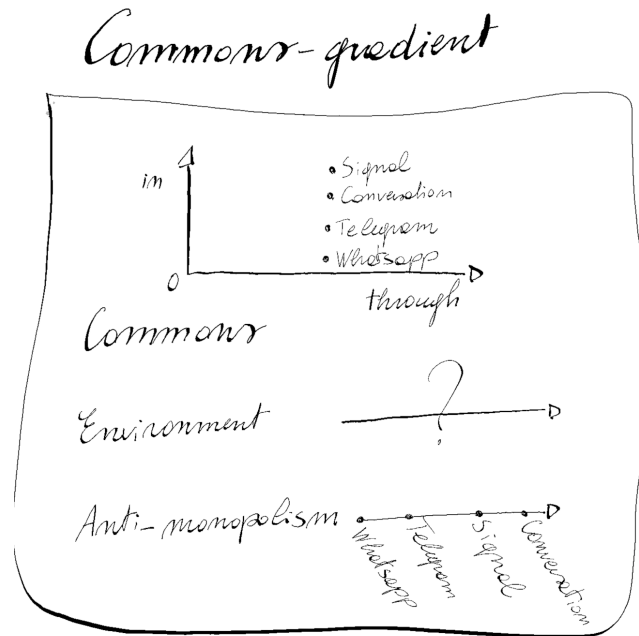 Commons-gradient
in
• Signal
• Conversation
• Telegram
• Whatsapp
0
through
Commons
Environment
?
Anti-monopolism
Whatsapp
Telegram
Signal
Conversation